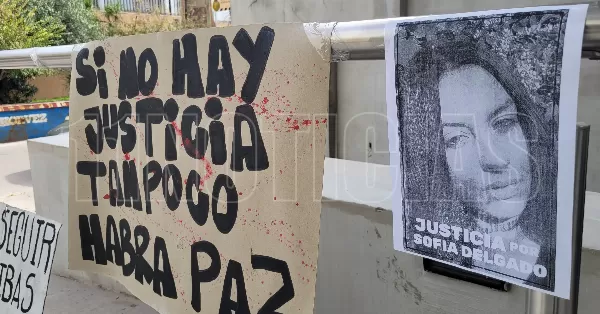 Si NO HAY
JUSTiCiA
TAMPOCO
HABRA PAZ
SEGUIR
JUSTICIA POR
SOFIA DELGADO
NOTICIAS